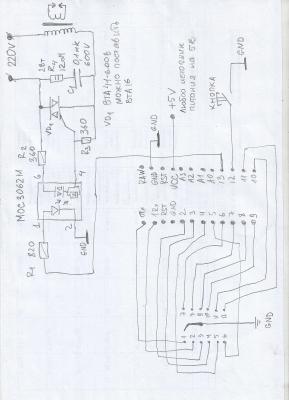 220V
2Вт
R4
120м
C1
0,1мк
600V
VD1
R2
360
R3 360
6
4
MOC3062M
1
2
R1 820
GND
VD1 BTA41-600B
можно поставить
BTA16
+5V
Любой источник
питания на 5В
КНОПКА
GND
GND
RAW
GND
RST
VCC
A3
A2
A1
A0
13
12
11
10
RST
GND
2
3
4
5
6
7
8
9
1
2
3
4
5
6
GND